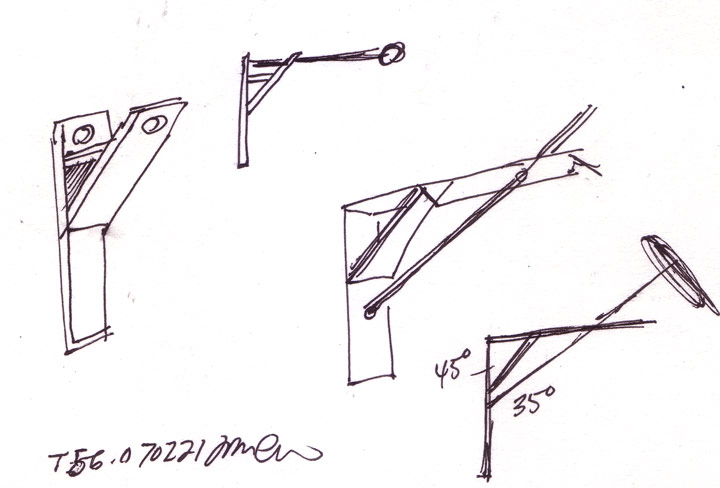 45°
35°
T56.070221